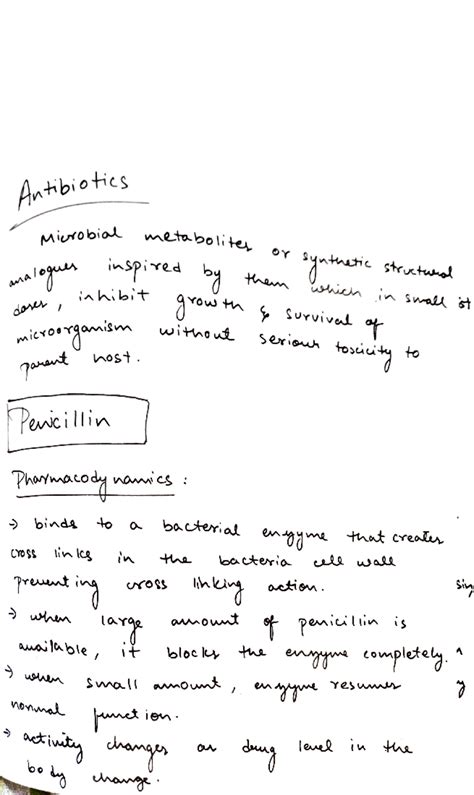 Antibiotics
Microbial metabolites or synthetic structural
analogues inspired by them which in small
doses, inhibit growth & survival of
microorganism without serious toxicity to
parent host.
Penicillin
Pharmacodynamics :
→ binds to a bacterial enzyme that creates
cross links in the bacteria cell wall
preventing cross linking action.
→ when large amount of penicillin is
available, it blocks the enzyme completely.
→ when small amount, enzyme resumes
normal function.
→ activity changes as drug level in the
body change.